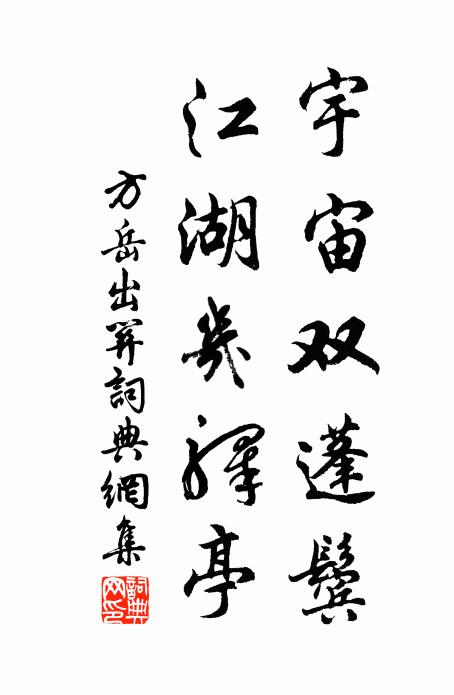 宇宙双蓬鬓
江湖几驿亭
方岳出关詞典網集
詞典网印